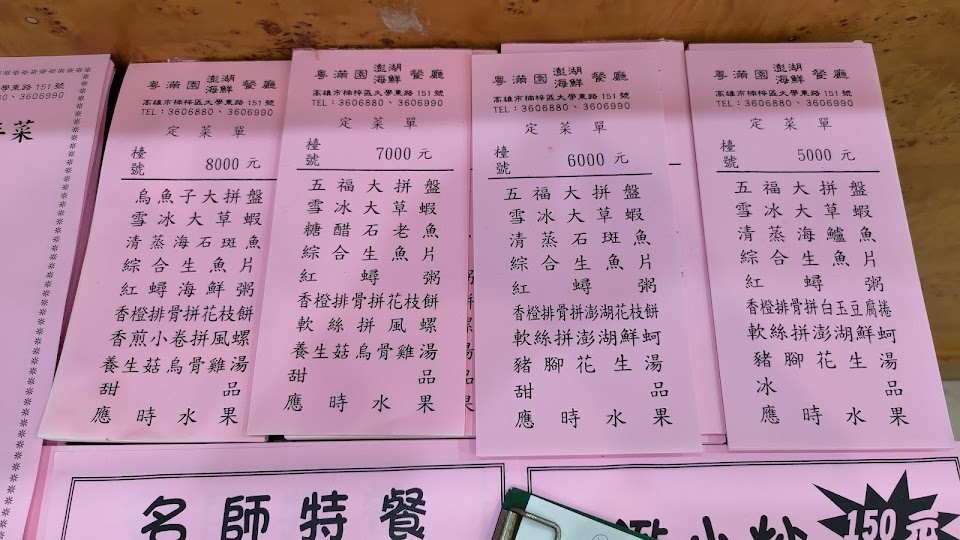 學東路 151 號
0、3606990
菜
粵滿園澎湖海鮮餐廳
高雄市楠梓區大學東路 151 號
TEL：3606880、3606990
定菜單
檯號 8000 元
烏魚子大拼盤
雪冰大草蝦
清蒸海石斑魚
綜合生魚片
紅蟳海鮮粥
香橙排骨拼花枝餅
香煎小卷拼風螺
養生菇烏骨雞湯
甜品
應時水果
粵滿園澎湖海鮮餐廳
高雄市楠梓區大學東路 151 號
TEL：3606880、3606990
定菜單
檯號 7000 元
五福大拼盤
雪冰大草蝦
糖醋石老魚
綜合生魚片
紅蟳粥
香橙排骨拼花枝餅
軟絲拼風螺
養生菇烏骨雞湯
甜品
應時水果
粵滿園澎湖海鮮餐廳
高雄市楠梓區大學東路 151 號
TEL：3606880、3606990
定菜單
檯號 6000 元
五福大拼盤
雪冰大草蝦
清蒸石斑魚
綜合生魚片
紅蟳粥
香橙排骨拼澎湖花枝餅
軟絲拼澎湖鮮蚵
豬腳花生湯
甜品
應時水果
粵滿園澎湖海鮮餐廳
高雄市楠梓區大學東路 151 號
TEL：3606880、3606990
定菜單
檯號 5000 元
五福大拼盤
雪冰大草蝦
清蒸海鱸魚
綜合生魚片
紅蟳粥
香橙排骨拼白玉豆腐捲
軟絲拼澎湖鮮蚵
豬腳花生湯
冰品
應時水果
名師特餐
小炒
150元